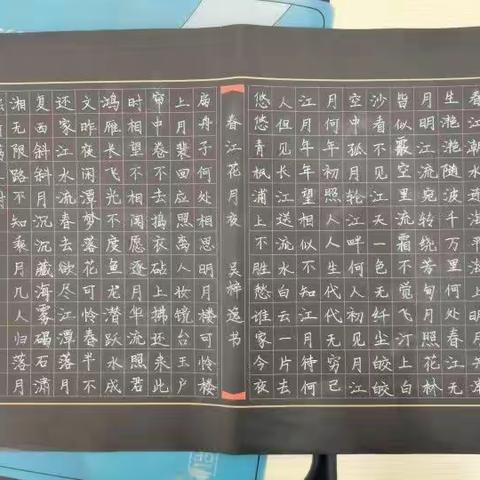 生滟滟随波千万里何处春江无
月明江流宛转绕芳甸月照花林
皆似霰空里流霜不觉飞汀上白
沙看不见江天一色无纤尘皎皎
空中孤月轮江畔何人初见月江
月何年初照人人生代代无穷已
江月年年望相似不知江月待何
人但见长江送流水白云一片去
悠悠青枫浦上不胜愁谁家今夜
春江花月夜 吴梓逸书
扁舟子何处相思明月楼可怜楼
上月裴回应照离人妆镜台玉户
帘中卷不去捣衣砧上拂还来此
时相望不相闻愿逐月华流照君
鸿雁长飞光不度鱼龙潜跃水成
文昨夜闲潭梦落花可怜春半不
还家江水流春去欲尽江潭落月
复西斜斜月沉沉藏海雾碣石潇
湘无限路不知乘月几人归落月